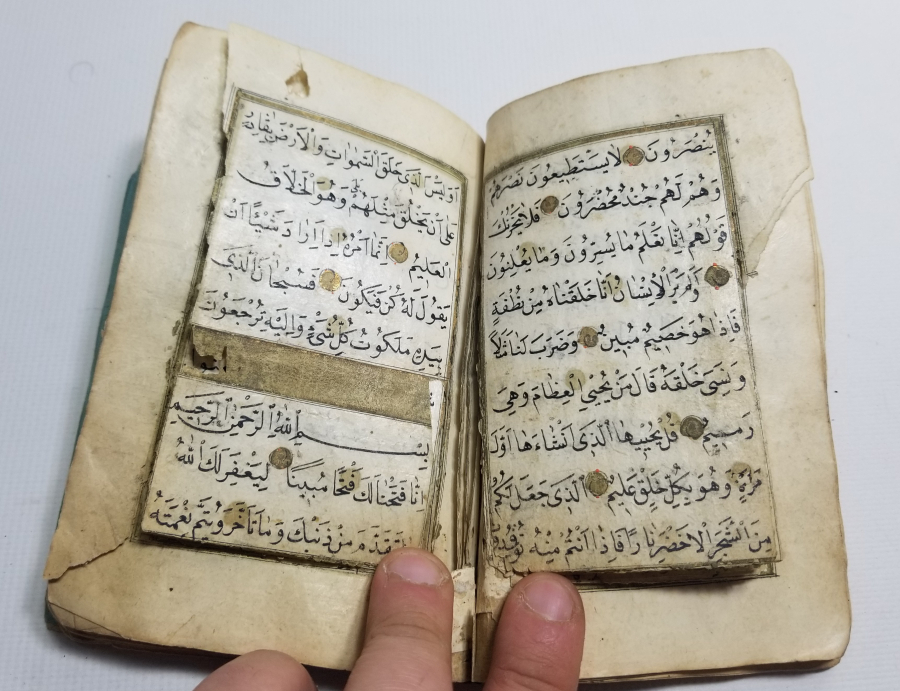 يُنْصَرُونَ لَا يَسْتَطِيعُونَ نَصْرَهُمْ
وَهُمْ لَهُمْ جُنْدٌ مُحْضَرُونَ فَلَا يَحْزُنْكَ
قَوْلُهُمْ اِنَّا نَعْلَمُ مَا يُسِرُّونَ وَمَا يُعْلِنُونَ
اَوَلَمْ يَرَ الْاِنْسَانُ اَنَّا خَلَقْنَاهُ مِنْ نُطْفَةٍ
فَاِذَا هُوَ خَصِيمٌ مُبِينٌ وَضَرَبَ لَنَا مَثَلًا
وَنَسِيَ خَلْقَهُ قَالَ مَنْ يُحْيِي الْعِظَامَ وَهِيَ
رَمِيمٌ قُلْ يُحْيِيهَا الَّذِي اَنْشَاَهَا اَوَّلَ
مَرَّةٍ وَهُوَ بِكُلِّ خَلْقٍ عَلِيمٌ الَّذِي جَعَلَ لَكُمْ
مِنَ الشَّجَرِ الْاَخْضَرِ نَارًا فَاِذَا اَنْتُمْ مِنْهُ تُوقِدُونَ
اَوَلَيْسَ الَّذِي خَلَقَ السَّمٰوَاتِ وَالْاَرْضَ بِقَادِرٍ
عَلٰى اَنْ يَخْلُقَ مِثْلَهُمْ بَلٰى وَهُوَ الْخَلَّاقُ
الْعَلِيمُ اِنَّمَا اَمْرُهُ اِذَا اَرَادَ شَيْئًا اَنْ
يَقُولَ لَهُ كُنْ فَيَكُونُ فَسُبْحَانَ الَّذِي
بِيَدِهِ مَلَكُوتُ كُلِّ شَيْءٍ وَاِلَيْهِ تُرْجَعُونَ
بِسْمِ اللّٰهِ الرَّحْمٰنِ الرَّحِيمِ
اِنَّا فَتَحْنَا لَكَ فَتْحًا مُبِينًا لِيَغْفِرَ لَكَ اللّٰهُ
تَقَدَّمَ مِنْ ذَنْبِكَ وَمَا تَاَخَّرَ وَيُتِمَّ نِعْمَتَهُ